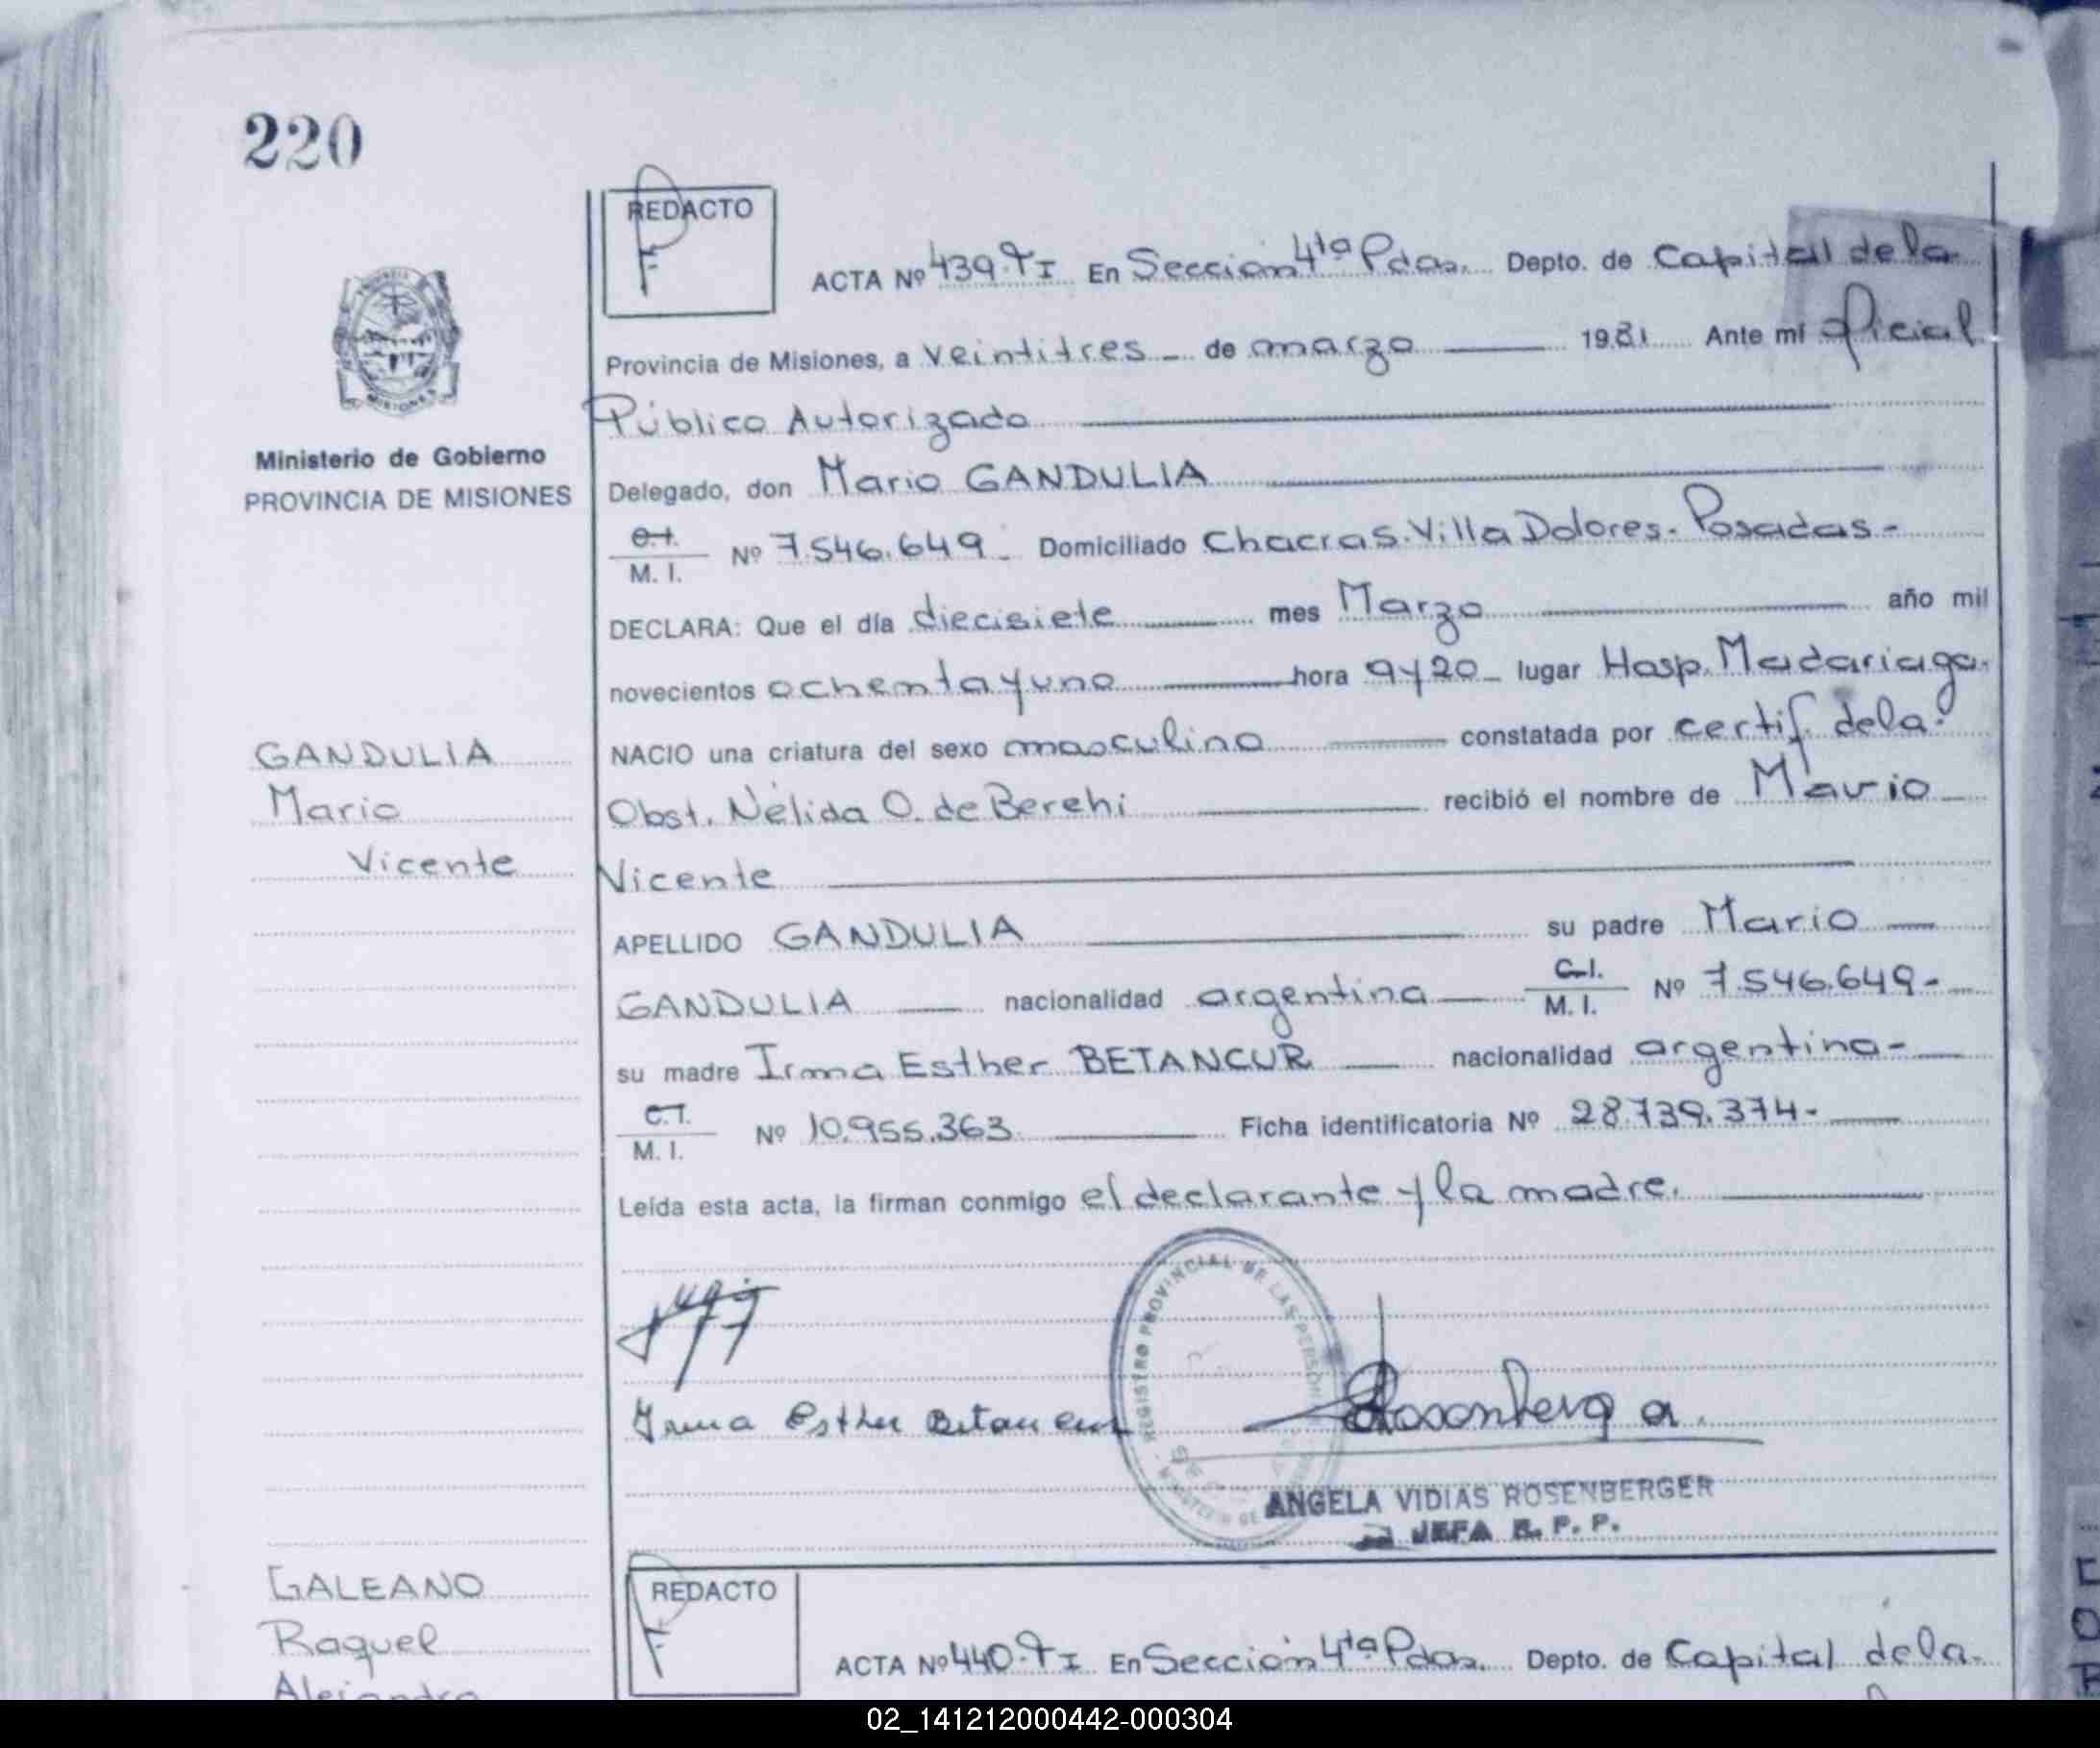 220
REDACTO
F
ACTA Nº 439-TI En Sección 4ta Pdas. Depto. de Capital de la
Provincia de Misiones, a veintitres - de marzo 1981 Ante mí Oficial
Público Autorizado
Ministerio de Gobierno
PROVINCIA DE MISIONES
Delegado, don Mario GANDULIA
C.I.
M. I. Nº 7.546.649- Domiciliado Chacras. Villa Dolores. Posadas-
DECLARA: Que el día diecisiete mes Marzo año mil
novecientos ochenta y uno hora 9 y 20 - lugar Hosp. Madariaga.
GANDULIA
Mario
Vicente
NACIO una criatura del sexo masculino constatada por certif. de la
Obst. Nélida O. de Berehi recibió el nombre de Mario
Vicente
APELLIDO GANDULIA su padre Mario
GANDULIA nacionalidad argentina C.I. M. I. Nº 7.546.649-
su madre Irma Esther BETANCUR nacionalidad argentina-
C.I.
M. I. Nº 10.955.363 Ficha identificatoria Nº 28.739.374-
Leída esta acta, la firman conmigo el declarante y la madre.
REGISTRO PROVINCIAL DE LAS PERSONAS
Irma Esther Betancur
Rosenberg a.
ANGELA VIDIAS ROSENBERGER
JEFA R. P. P.
GALEANO
Raquel
Alejandra
REDACTO
F
ACTA Nº 440-TI En Sección 4ta Pdas. Depto. de Capital de la
02_141212000442-000304